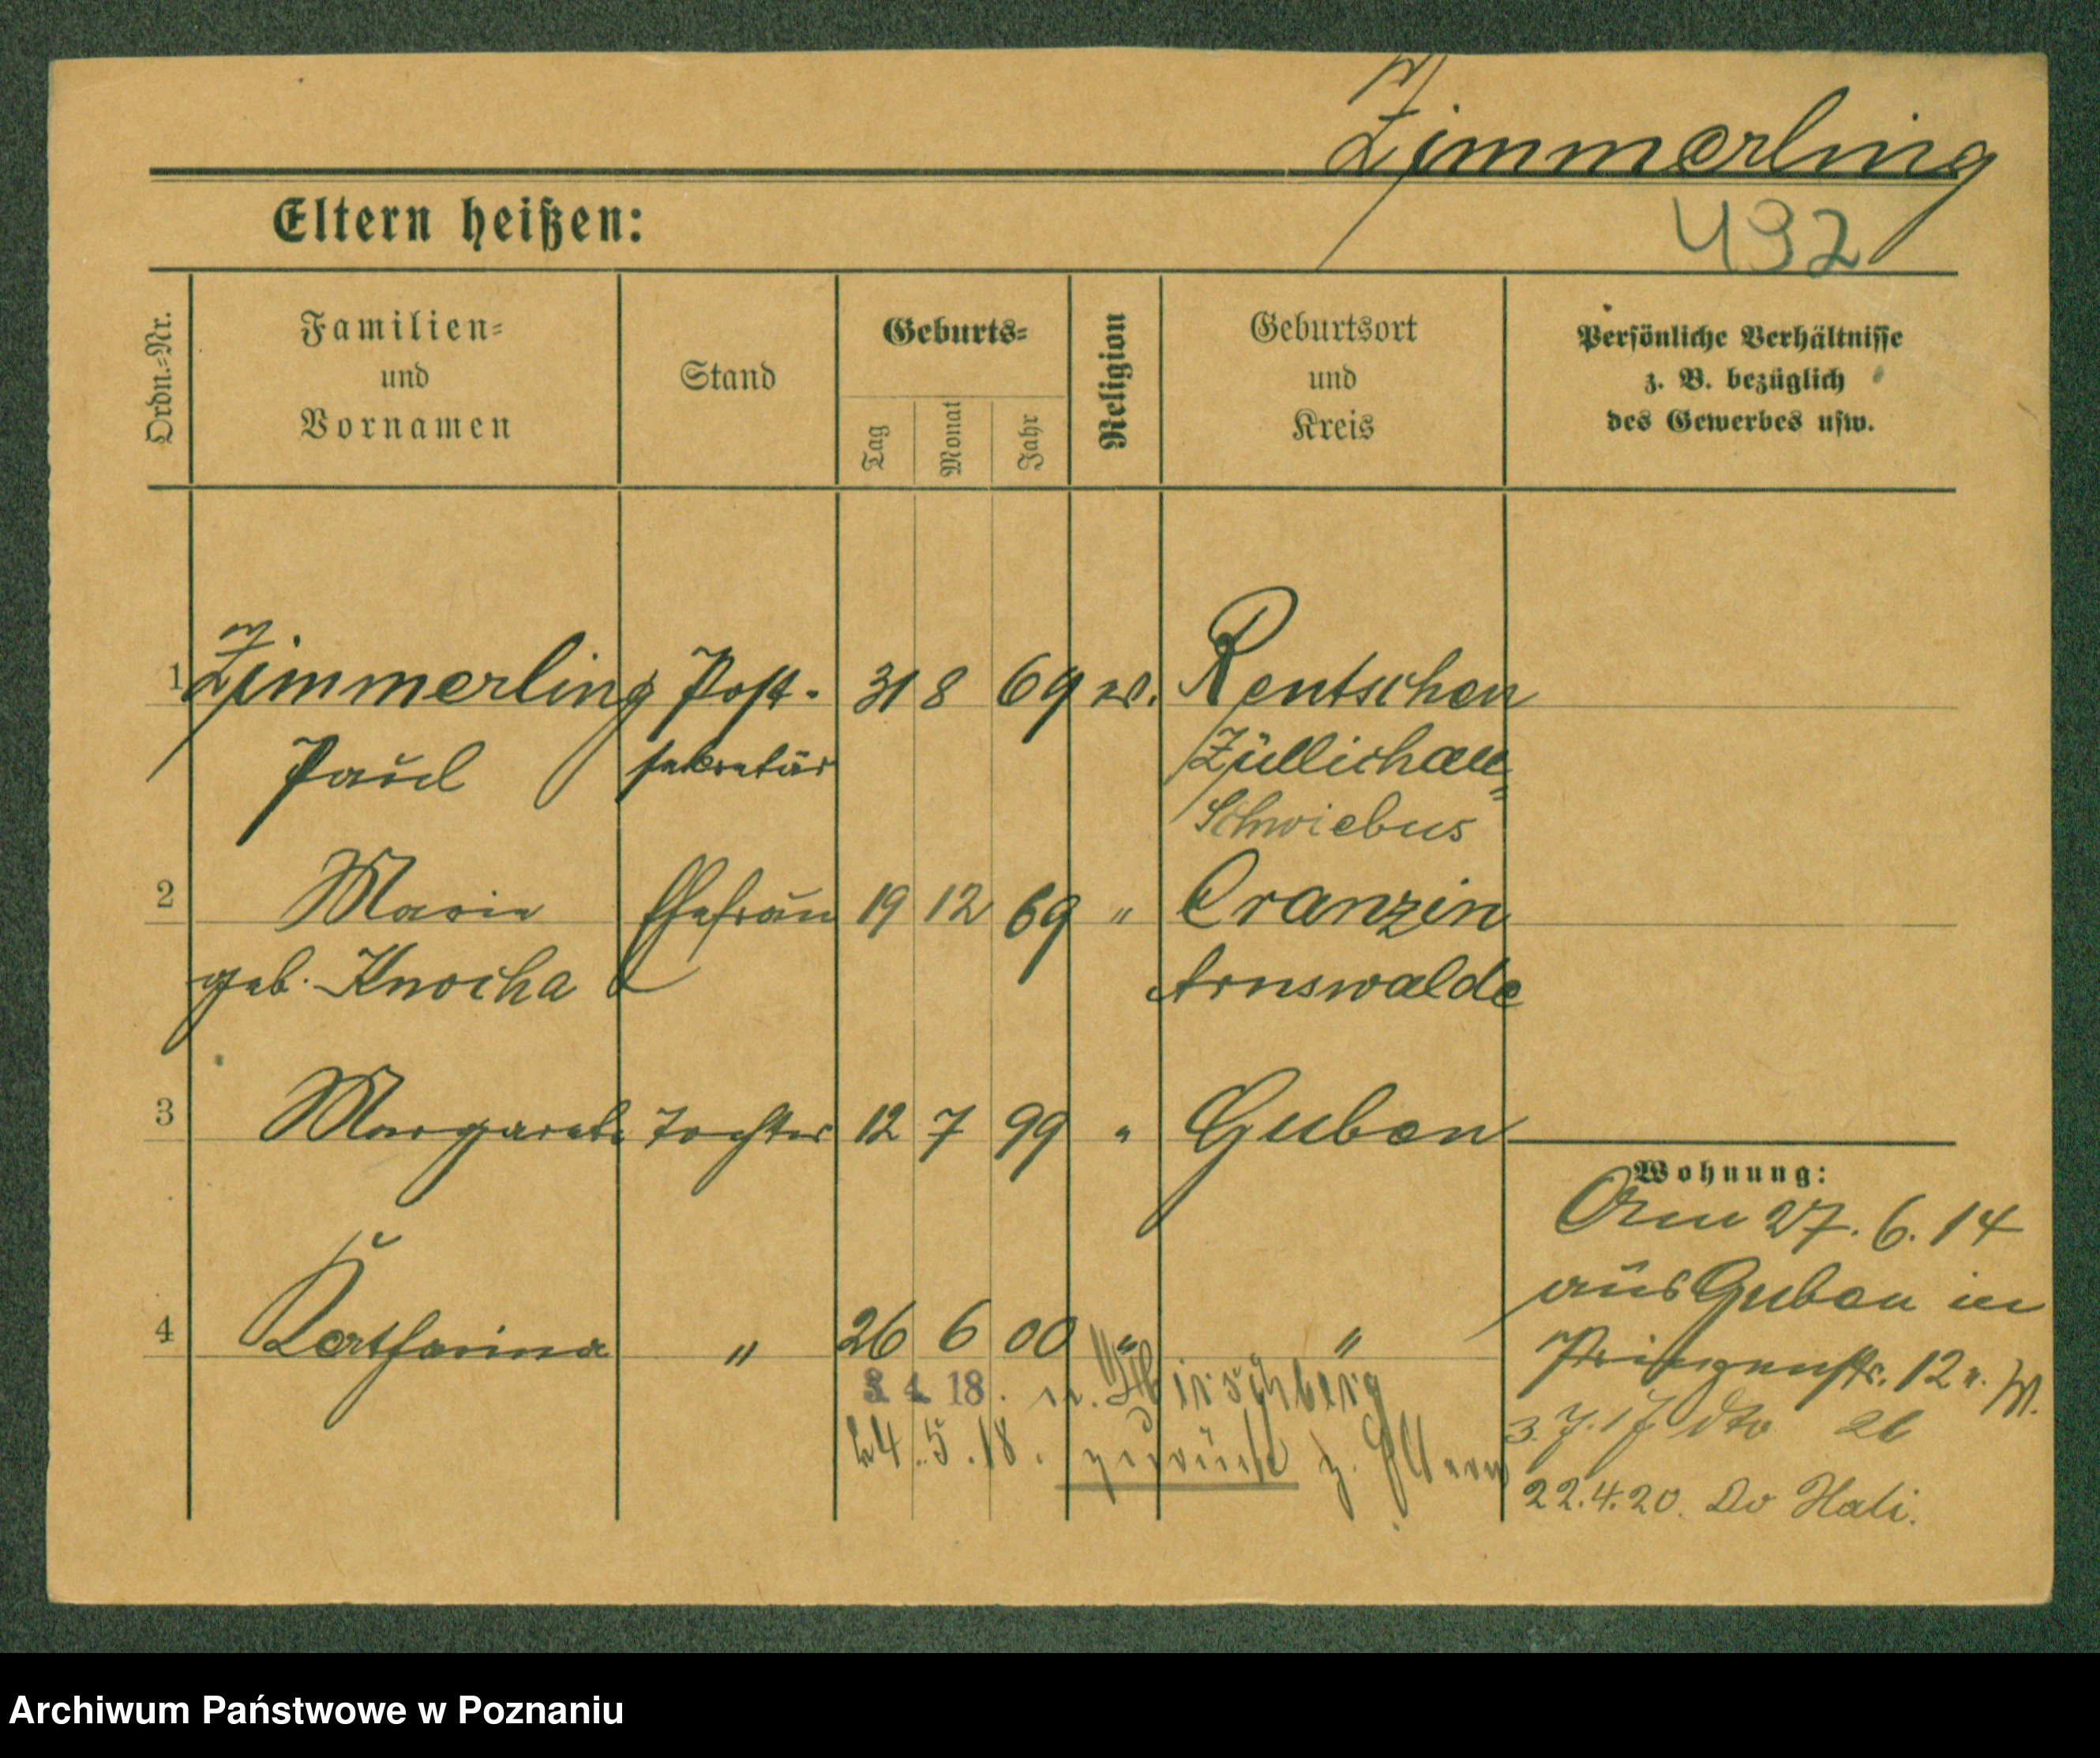 Zimmerling
Eltern heißen: 432
Ordn.=Nr. Familien= und Vornamen Stand Geburts= Tag Monat Jahr Religion Geburtsort und Kreis Persönliche Verhältnisse z. B. bezüglich des Gewerbes usw.
1 Zimmerling Post- 31 8 69 ev. Rentschen
Paul sekretär Züllichau=
Schwiebus
2 Marie Ehefrau 19 12 69 " Cranzin
geb. Knocha Arnswalde
3 Margarete Tochter 12 7 99 " Guben
Wohnung:
27. 6. 14
aus Guben in
4 Katharina " 26 6 00 " "
Prinzenstr. 12 W.
3. 4. 18. n. Hirschberg
3. 7. 17 dto ab
24. 5. 18. zurück z. Eltern
22. 4. 20.
Archiwum Państwowe w Poznaniu